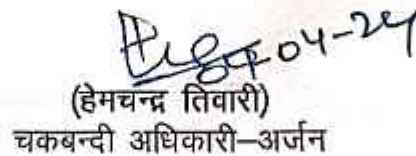 04-24
(हेमचन्द्र तिवारी)
चकबन्दी अधिकारी–अर्जन